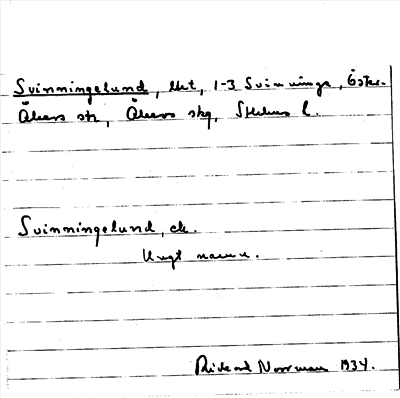 Svinningelund, lht, 1-3 Svinninge, Öster-
Åkers sn, Åkers skg, Sthlms l.
Svinningelund, ds.
Ungt namn.
Rickard Norrman 1934.